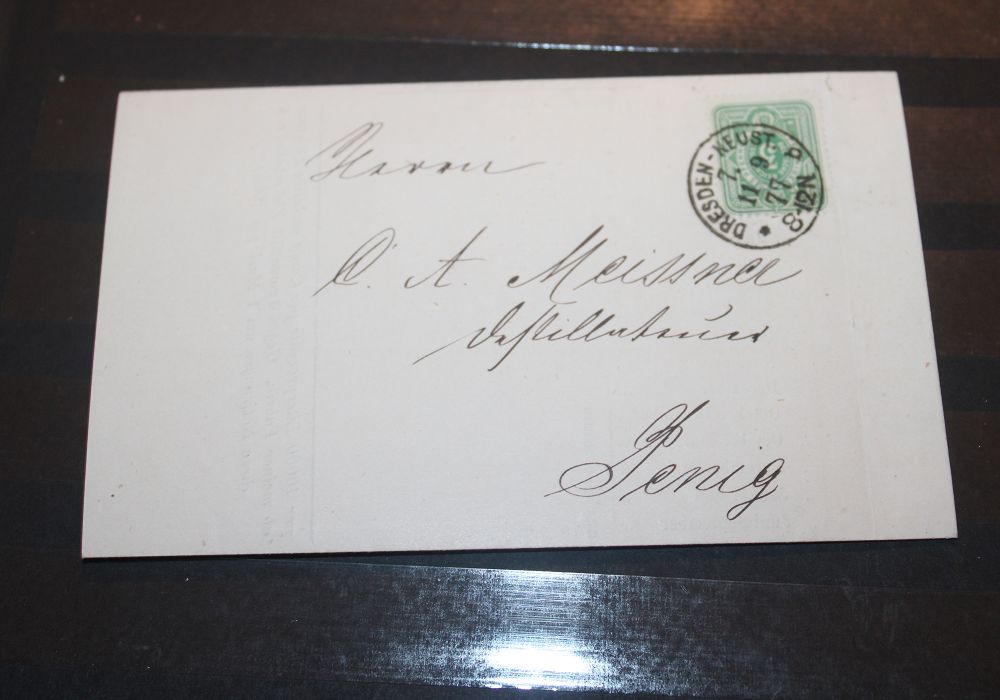 DRESDEN-NEUST. b
7.
11 9
77
8-12N
Herrn
C. A. Meissner
Destillateur
Penig